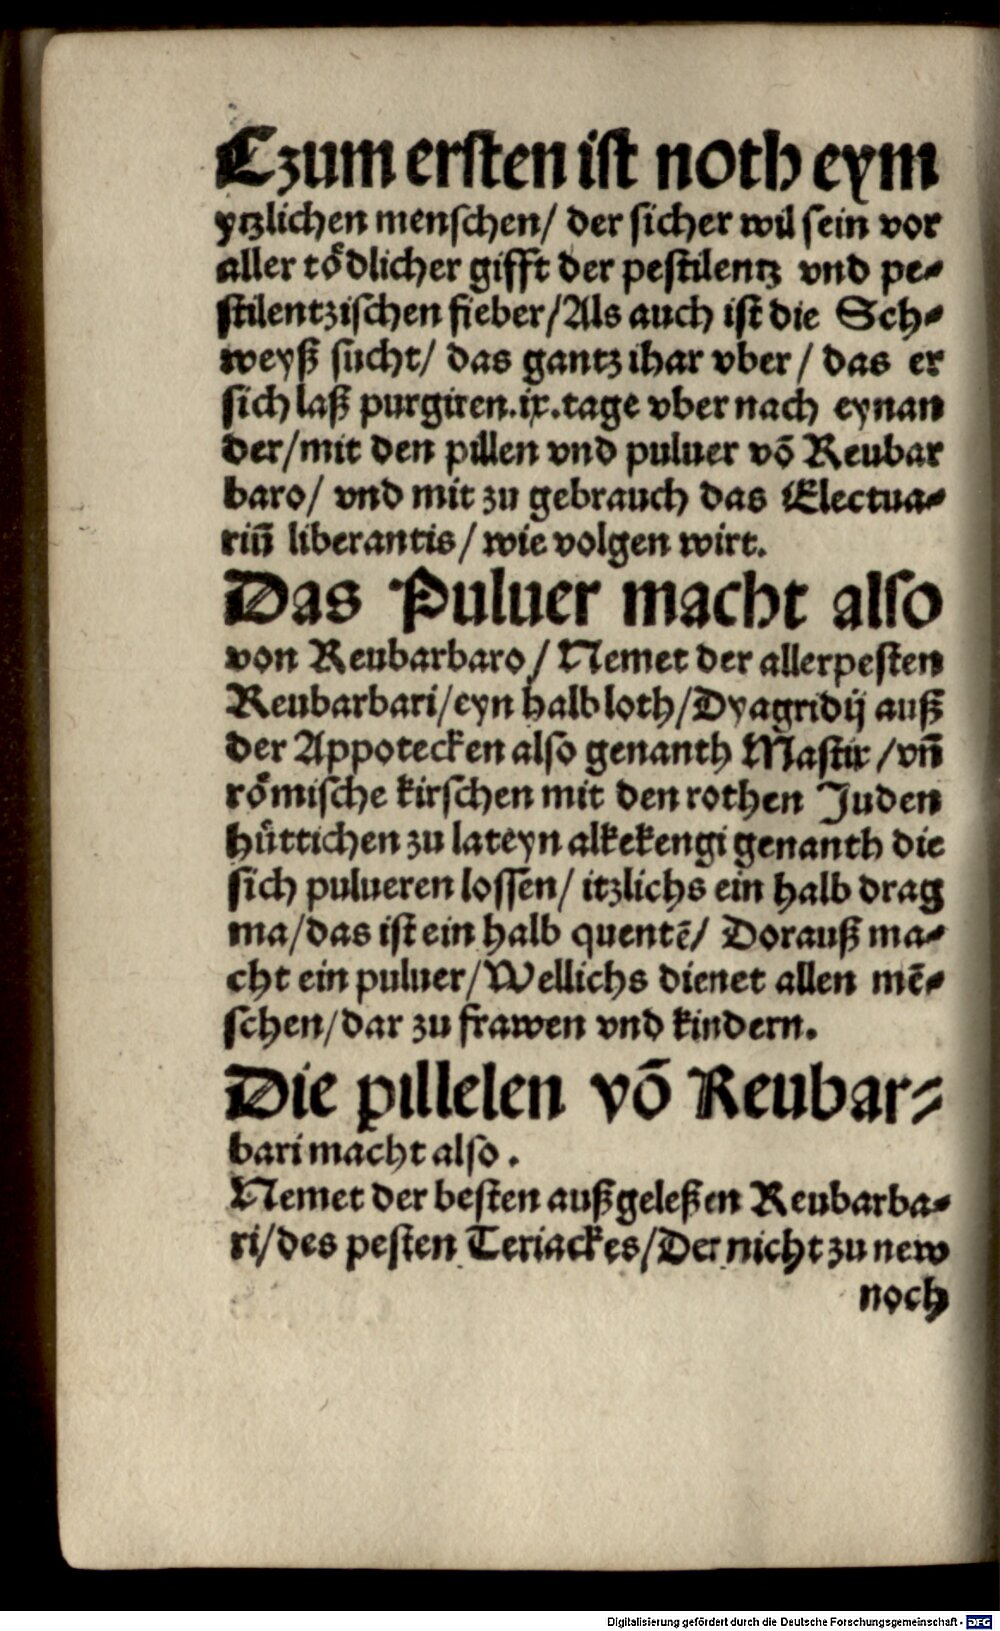 Czum ersten ist noth eym
ytzlichen menschen/ der sicher wil sein vor
aller tödlicher gifft der pestilentz vnd pe-
stilentzischen fieber/Als auch ist die Sch-
weyß sucht/ das gantz ihar vber/ das er
sich laß purgiren.ix.tage vber nach eynan
der/mit den pillen vnd puluer võ Reubar
baro/ vnd mit zu gebrauch das Electua-
riũ liberantis/ wie volgen wirt.
Das Puluer macht also
von Reubarbaro/ Nemet der allerpesten
Reubarbari/eyn halb loth/Dyagridij auß
der Appotecken also genanth Mastix/vñ
römische kirschen mit den rothen Juden
hüttichen zu lateyn alkekengi genanth die
sich pulueren lossen/ itzlichs ein halb drag
ma/das ist ein halb quentẽ/ Dorauß ma-
cht ein puluer/Wellichs dienet allen mẽ-
schen/dar zu frawen vnd kindern.
Die pillelen võ Reubar-
bari macht also.
Nemet der besten außgeleßen Reubarba-
ri/des pesten Teriackes/Der nicht zu new
noch
Digitalisierung gefördert durch die Deutsche Forschungsgemeinschaft - DFG